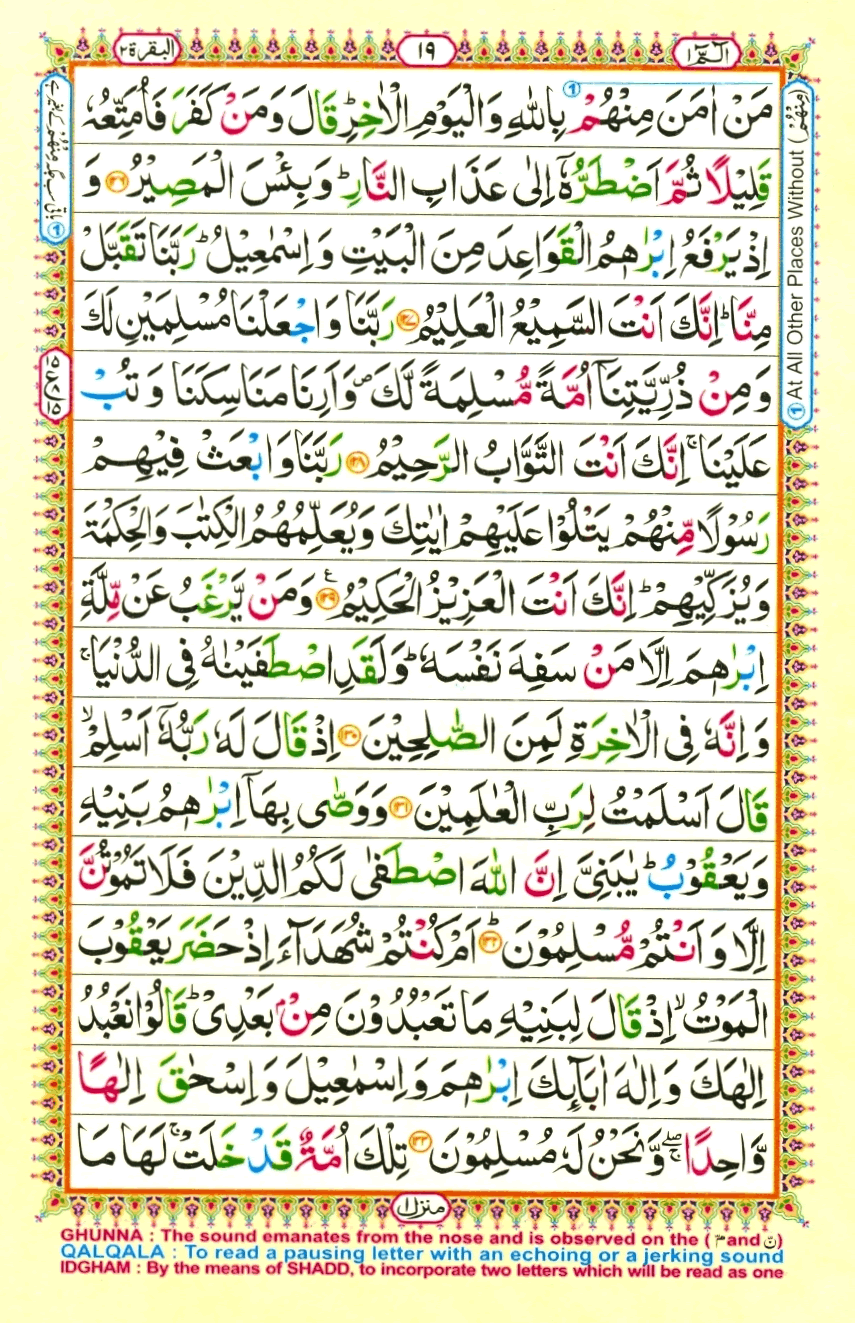 الٓمّٓ ١
١٩
البقرة ٢
مَنْ اٰمَنَ مِنْهُمْ بِاللّٰهِ وَالْيَوْمِ الْاٰخِرِ ؕ قَالَ وَمَنْ كَفَرَ فَاُمَتِّعُهٗ
قَلِيْلًا ثُمَّ اَضْطَرُّهٗۤ اِلٰى عَذَابِ النَّارِ ؕ وَبِئْسَ الْمَصِيْرُ ﴿۱۲۶﴾ وَ
اِذْ يَرْفَعُ اِبْرٰهٖمُ الْقَوَاعِدَ مِنَ الْبَيْتِ وَاِسْمٰعِيْلُ ؕ رَبَّنَا تَقَبَّلْ
مِنَّا ؕ اِنَّكَ اَنْتَ السَّمِيْعُ الْعَلِيْمُ ﴿۱۲۷﴾ رَبَّنَا وَاجْعَلْنَا مُسْلِمَيْنِ لَكَ
وَمِنْ ذُرِّيَّتِنَاۤ اُمَّةً مُّسْلِمَةً لَّكَ ۪ وَاَرِنَا مَنَاسِكَنَا وَتُبْ
عَلَيْنَا ۚ اِنَّكَ اَنْتَ التَّوَّابُ الرَّحِيْمُ ﴿۱۲۸﴾ رَبَّنَا وَابْعَثْ فِيْهِمْ
رَسُوْلًا مِّنْهُمْ يَتْلُوْا عَلَيْهِمْ اٰيٰتِكَ وَيُعَلِّمُهُمُ الْكِتٰبَ وَالْحِكْمَةَ
وَيُزَكِّيْهِمْ ؕ اِنَّكَ اَنْتَ الْعَزِيْزُ الْحَكِيْمُ ﴿۱۲۹﴾ ع وَمَنْ يَّرْغَبُ عَنْ مِّلَّةِ
اِبْرٰهٖمَ اِلَّا مَنْ سَفِهَ نَفْسَهٗ ؕ وَلَقَدِ اصْطَفَيْنٰهُ فِى الدُّنْيَا ۚ
وَاِنَّهٗ فِى الْاٰخِرَةِ لَمِنَ الصّٰلِحِيْنَ ﴿۱۳۰﴾ اِذْ قَالَ لَهٗ رَبُّهٗۤ اَسْلِمْ ۙ
قَالَ اَسْلَمْتُ لِرَبِّ الْعٰلَمِيْنَ ﴿۱۳۱﴾ وَوَصّٰى بِهَاۤ اِبْرٰهٖمُ بَنِيْهِ
وَيَعْقُوْبُ ؕ يٰبَنِىَّ اِنَّ اللّٰهَ اصْطَفٰى لَكُمُ الدِّيْنَ فَلَا تَمُوْتُنَّ
اِلَّا وَاَنْتُمْ مُّسْلِمُوْنَ ؕ ﴿۱۳۲﴾ اَمْ كُنْتُمْ شُهَدَآءَ اِذْ حَضَرَ يَعْقُوْبَ
الْمَوْتُ ۙ اِذْ قَالَ لِبَنِيْهِ مَا تَعْبُدُوْنَ مِنْۢ بَعْدِىْ ؕ قَالُوْا نَعْبُدُ
اِلٰهَكَ وَاِلٰهَ اٰبَآئِكَ اِبْرٰهٖمَ وَاِسْمٰعِيْلَ وَاِسْحٰقَ اِلٰهًا
وَّاحِدًا ۖۚ وَّنَحْنُ لَهٗ مُسْلِمُوْنَ ﴿۱۳۳﴾ تِلْكَ اُمَّةٌ قَدْ خَلَتْ ۚ لَهَا مَا
منزل ١
① At All Other Places Without (مِنْهُمْ)
GHUNNA : The sound emanates from the nose and is observed on the ( مّ and نّ )
QALQALA : To read a pausing letter with an echoing or a jerking sound
IDGHAM : By the means of SHADD, to incorporate two letters which will be read as one